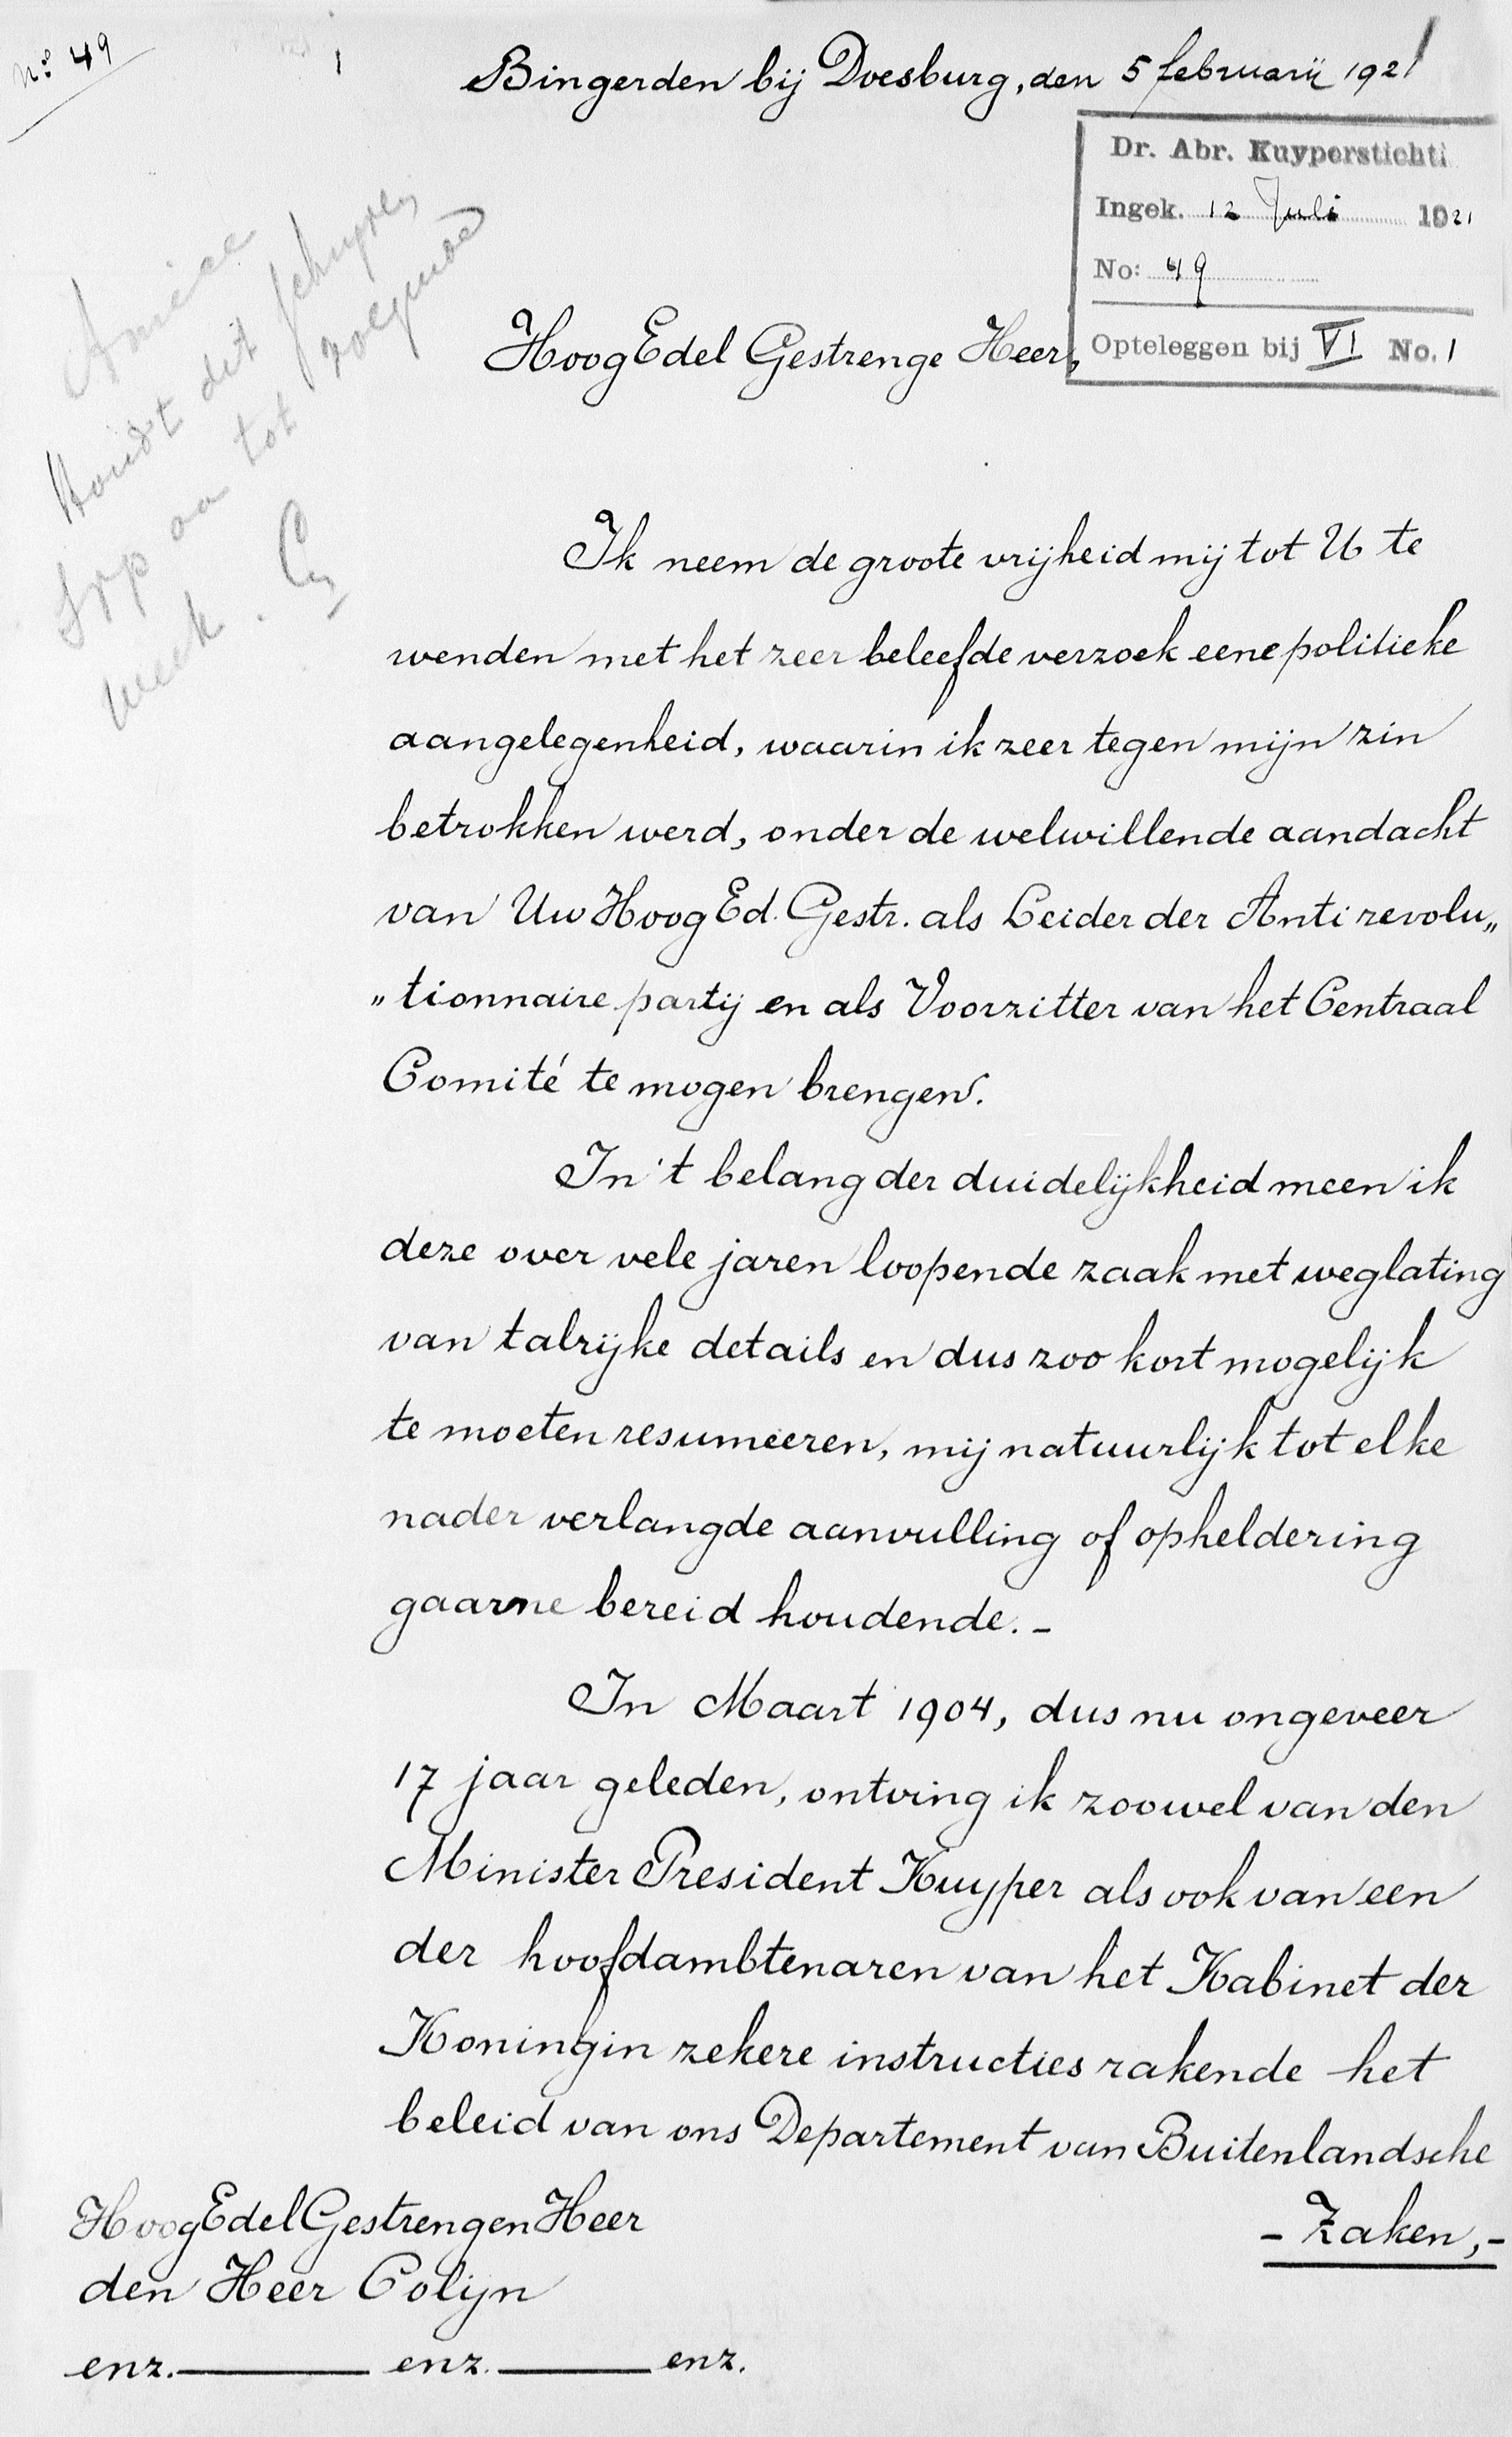 No. 49
1
Bingerden bij Doesburg, den 5 februarij 1921
Dr. Abr. Kuyperstichti
Ingek. 12 Juli 1921
No: 49
Opteleggen bij VI No. 1
Amice
Houdt dit schrijven
svp aan tot volgende
week. C
HoogEdel Gestrenge Heer,
Ik neem de groote vrijheid mij tot U te
wenden met het zeer beleefde verzoek eene politieke
aangelegenheid, waarin ik zeer tegen mijn zin
betrokken werd, onder de welwillende aandacht
van Uw HoogEd. Gestr. als Leider der Antirevolu„
„tionnaire partij en als Voorzitter van het Centraal
Comité te mogen brengen.
In 't belang der duidelijkheid meen ik
deze over vele jaren loopende zaak met weglating
van talrijke details en dus zoo kort mogelijk
te moeten resumeeren, mij natuurlijk tot elke
nader verlangde aanvulling of opheldering
gaarne bereid houdende. -
In Maart 1904, dus nu ongeveer
17 jaar geleden, ontving ik zoowel van den
Minister President Kuyper als ook van een
der hoofdambtenaren van het Kabinet der
Koningin zekere instructies rakende het
beleid van ons Departement van Buitenlandsche
- Zaken, -
HoogEdelGestrengen Heer
den Heer Colijn
enz. ——— enz. ——— enz.